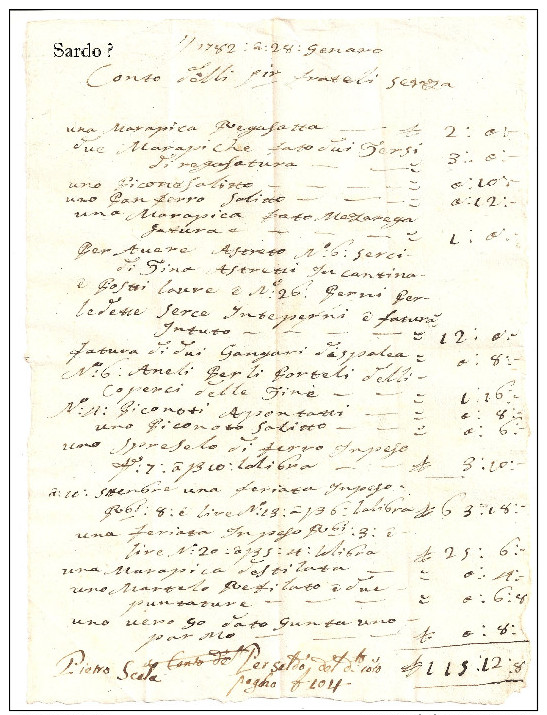 Sardo ?
1782 : a : 28 : Genaro
Conto delli frateli Serra
una Marapica Regasatta — 2 : 0 :-
due Marapiche fato dui Tersi
di regasatura — 3 : 0 :-
uno Picone Solitto — 0 : 10 :-
uno Panferro Solitto — 0 : 12 :-
una Marapica fato Mezarega
satura e — 1 : 0 :-
Per Avere Astreto N.º 6 : Serci
di Tina Astretti In Cantina
e Posti laure e N.º 26 : Perni Per
ledette Serce Inteperni e fatura
Intuto — 12 : 0 :-
fatura di dui Gangari — 0 : 8 :-
N.º 6 : Aneli Per li Porteli delli
Coperci delle Tine — 1 : 16 :-
N.º 11 : Piconoti Apontatti — 0 : 8 :-
uno Piconoto Solitto — 0 : 6 :-
uno di ferro In peso
7 : a 10 : la libra — 3 : 10 :-
a : 10 : Settenbre una feriata In peso
8 : e lire N.º 13 : a 6 : la libra 63 : 18 :-
una feriata In peso 3 : e
lire N.º 20 : 4 : la libra 25 : 6 :-
una Marapica destilata — 0 : 4 :-
uno Martelo Restilato e due
puntature — 0 : 6 : 8
uno vero go dato Gunta uno
— 0 : 8 :-
Pietro Scala Per saldo 115 : 12 : 8
pagho 104